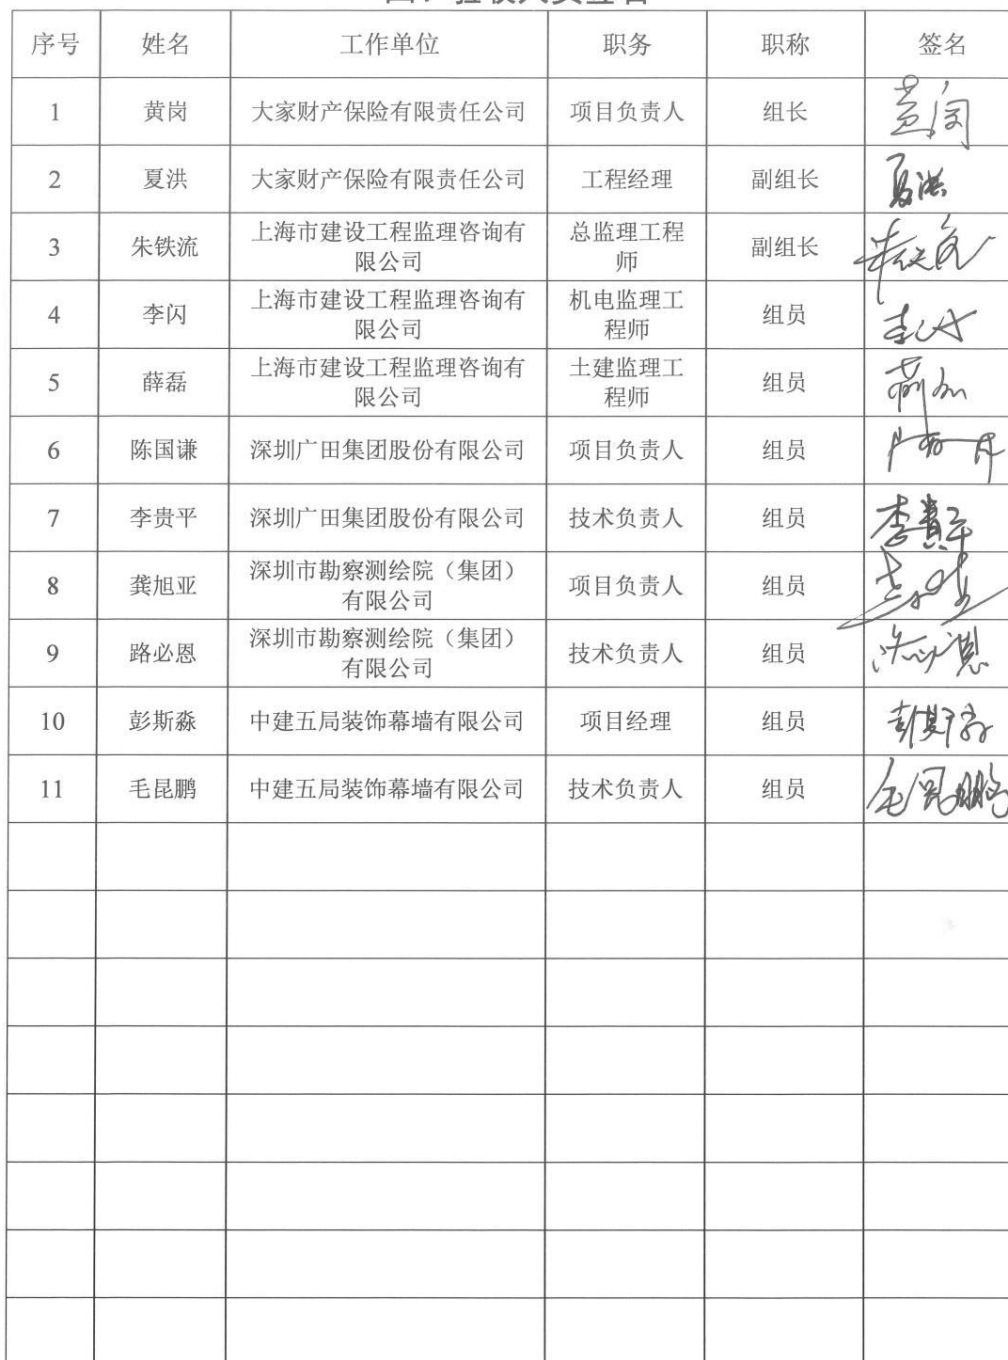 四、验收人员签名
序号 姓名 工作单位 职务 职称 签名
1 黄岗 大家财产保险有限责任公司 项目负责人 组长
2 夏洪 大家财产保险有限责任公司 工程经理 副组长 夏洪
3 朱铁流 上海市建设工程监理咨询有 总监理工程 副组长
限公司 师
4 李闪 上海市建设工程监理咨询有 机电监理工 组员
限公司 程师
5 薛磊 上海市建设工程监理咨询有 土建监理工 组员
限公司 程师
6 陈国谦 深圳广田集团股份有限公司 项目负责人 组员
7 李贵平 深圳广田集团股份有限公司 技术负责人 组员 李貴平
8 龚旭亚 深圳市勘察测绘院（集团） 项目负责人 组员
有限公司
9 路必恩 深圳市勘察测绘院（集团） 技术负责人 组员
有限公司
10 彭斯淼 中建五局装饰幕墙有限公司 项目经理 组员 彭斯淼
11 毛昆鹏 中建五局装饰幕墙有限公司 技术负责人 组员 毛昆鹏